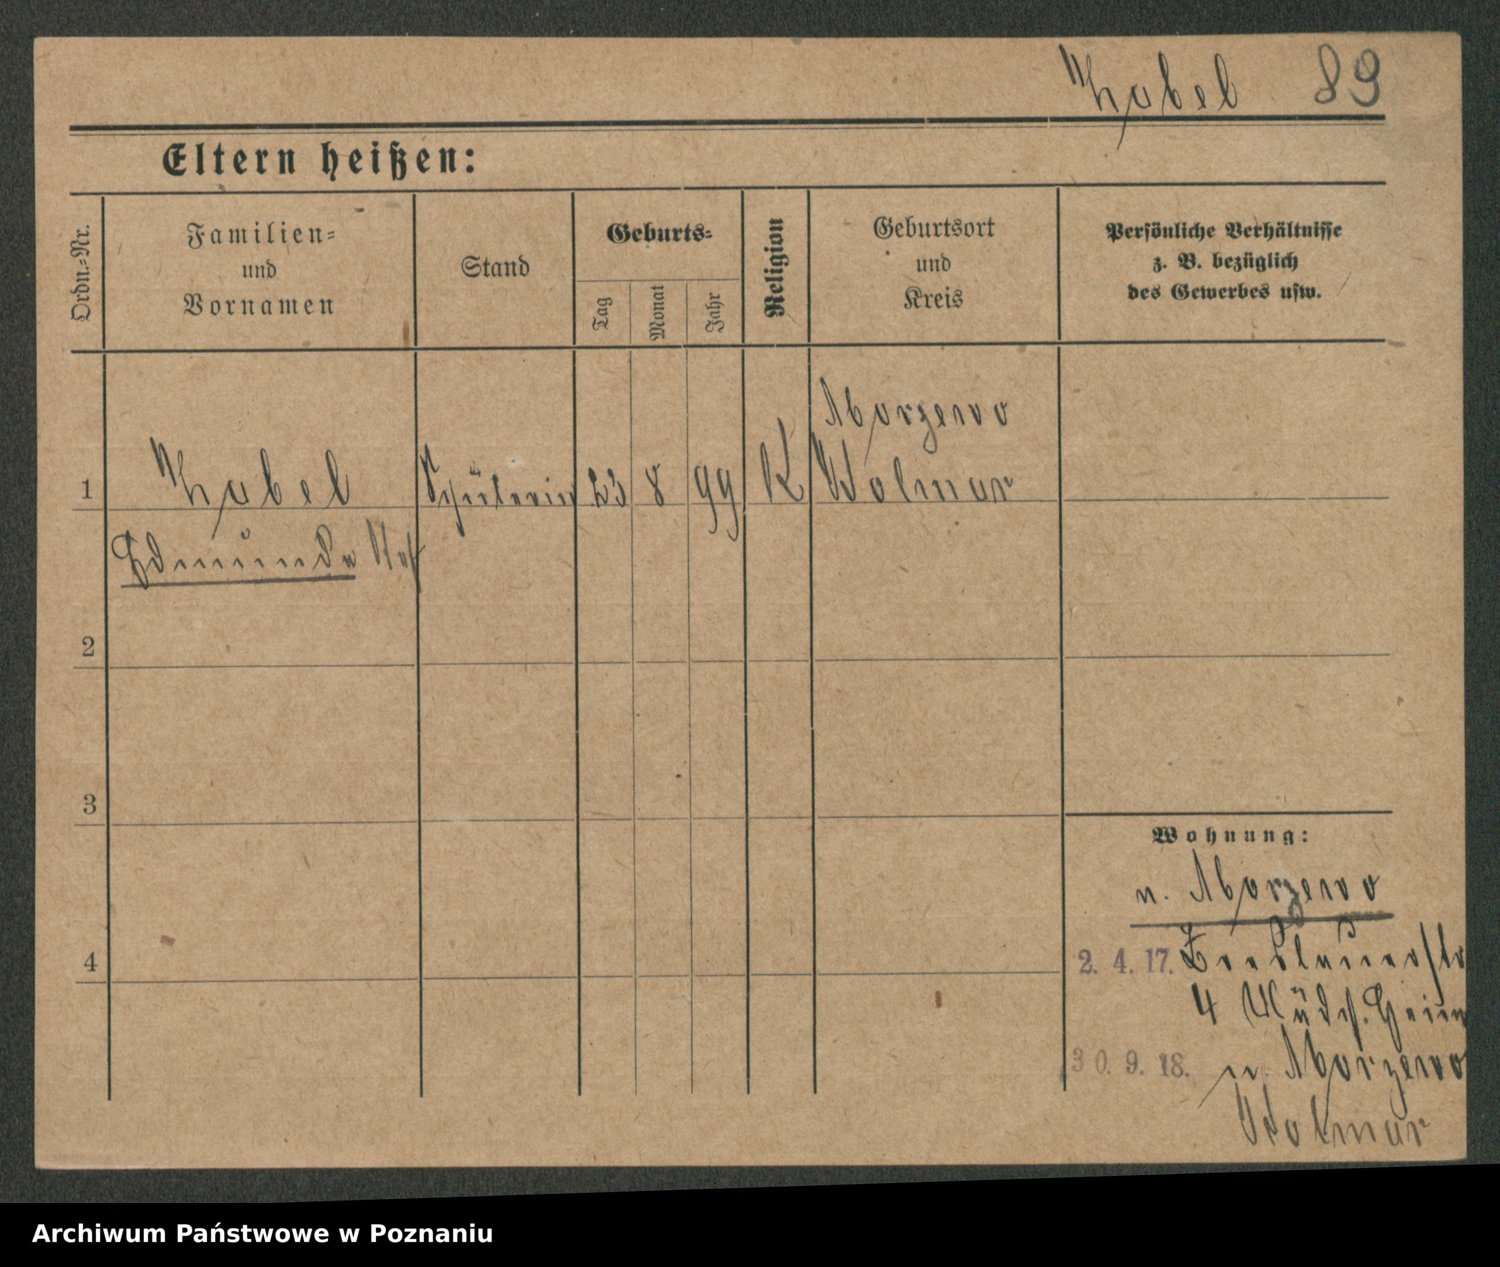 Zabel 89
Eltern heißen:
Ordn.-Nr.
Familien-
und
Vornamen
Stand
Geburts-
Tag
Monat
Jahr
Religion
Geburtsort
und
Kreis
Persönliche Verhältnisse
z. B. bezüglich
des Gewerbes usw.
Morzewo
1 Zabel Schülerin 23 8 99 K Kolmar
Edmunda
2
3
Wohnung:
n. Morzewo
4
2. 4. 17. Breslauerstr
4 Mädch. Heim
30. 9. 18. n. Morzewo
Kolmar
Archiwum Państwowe w Poznaniu